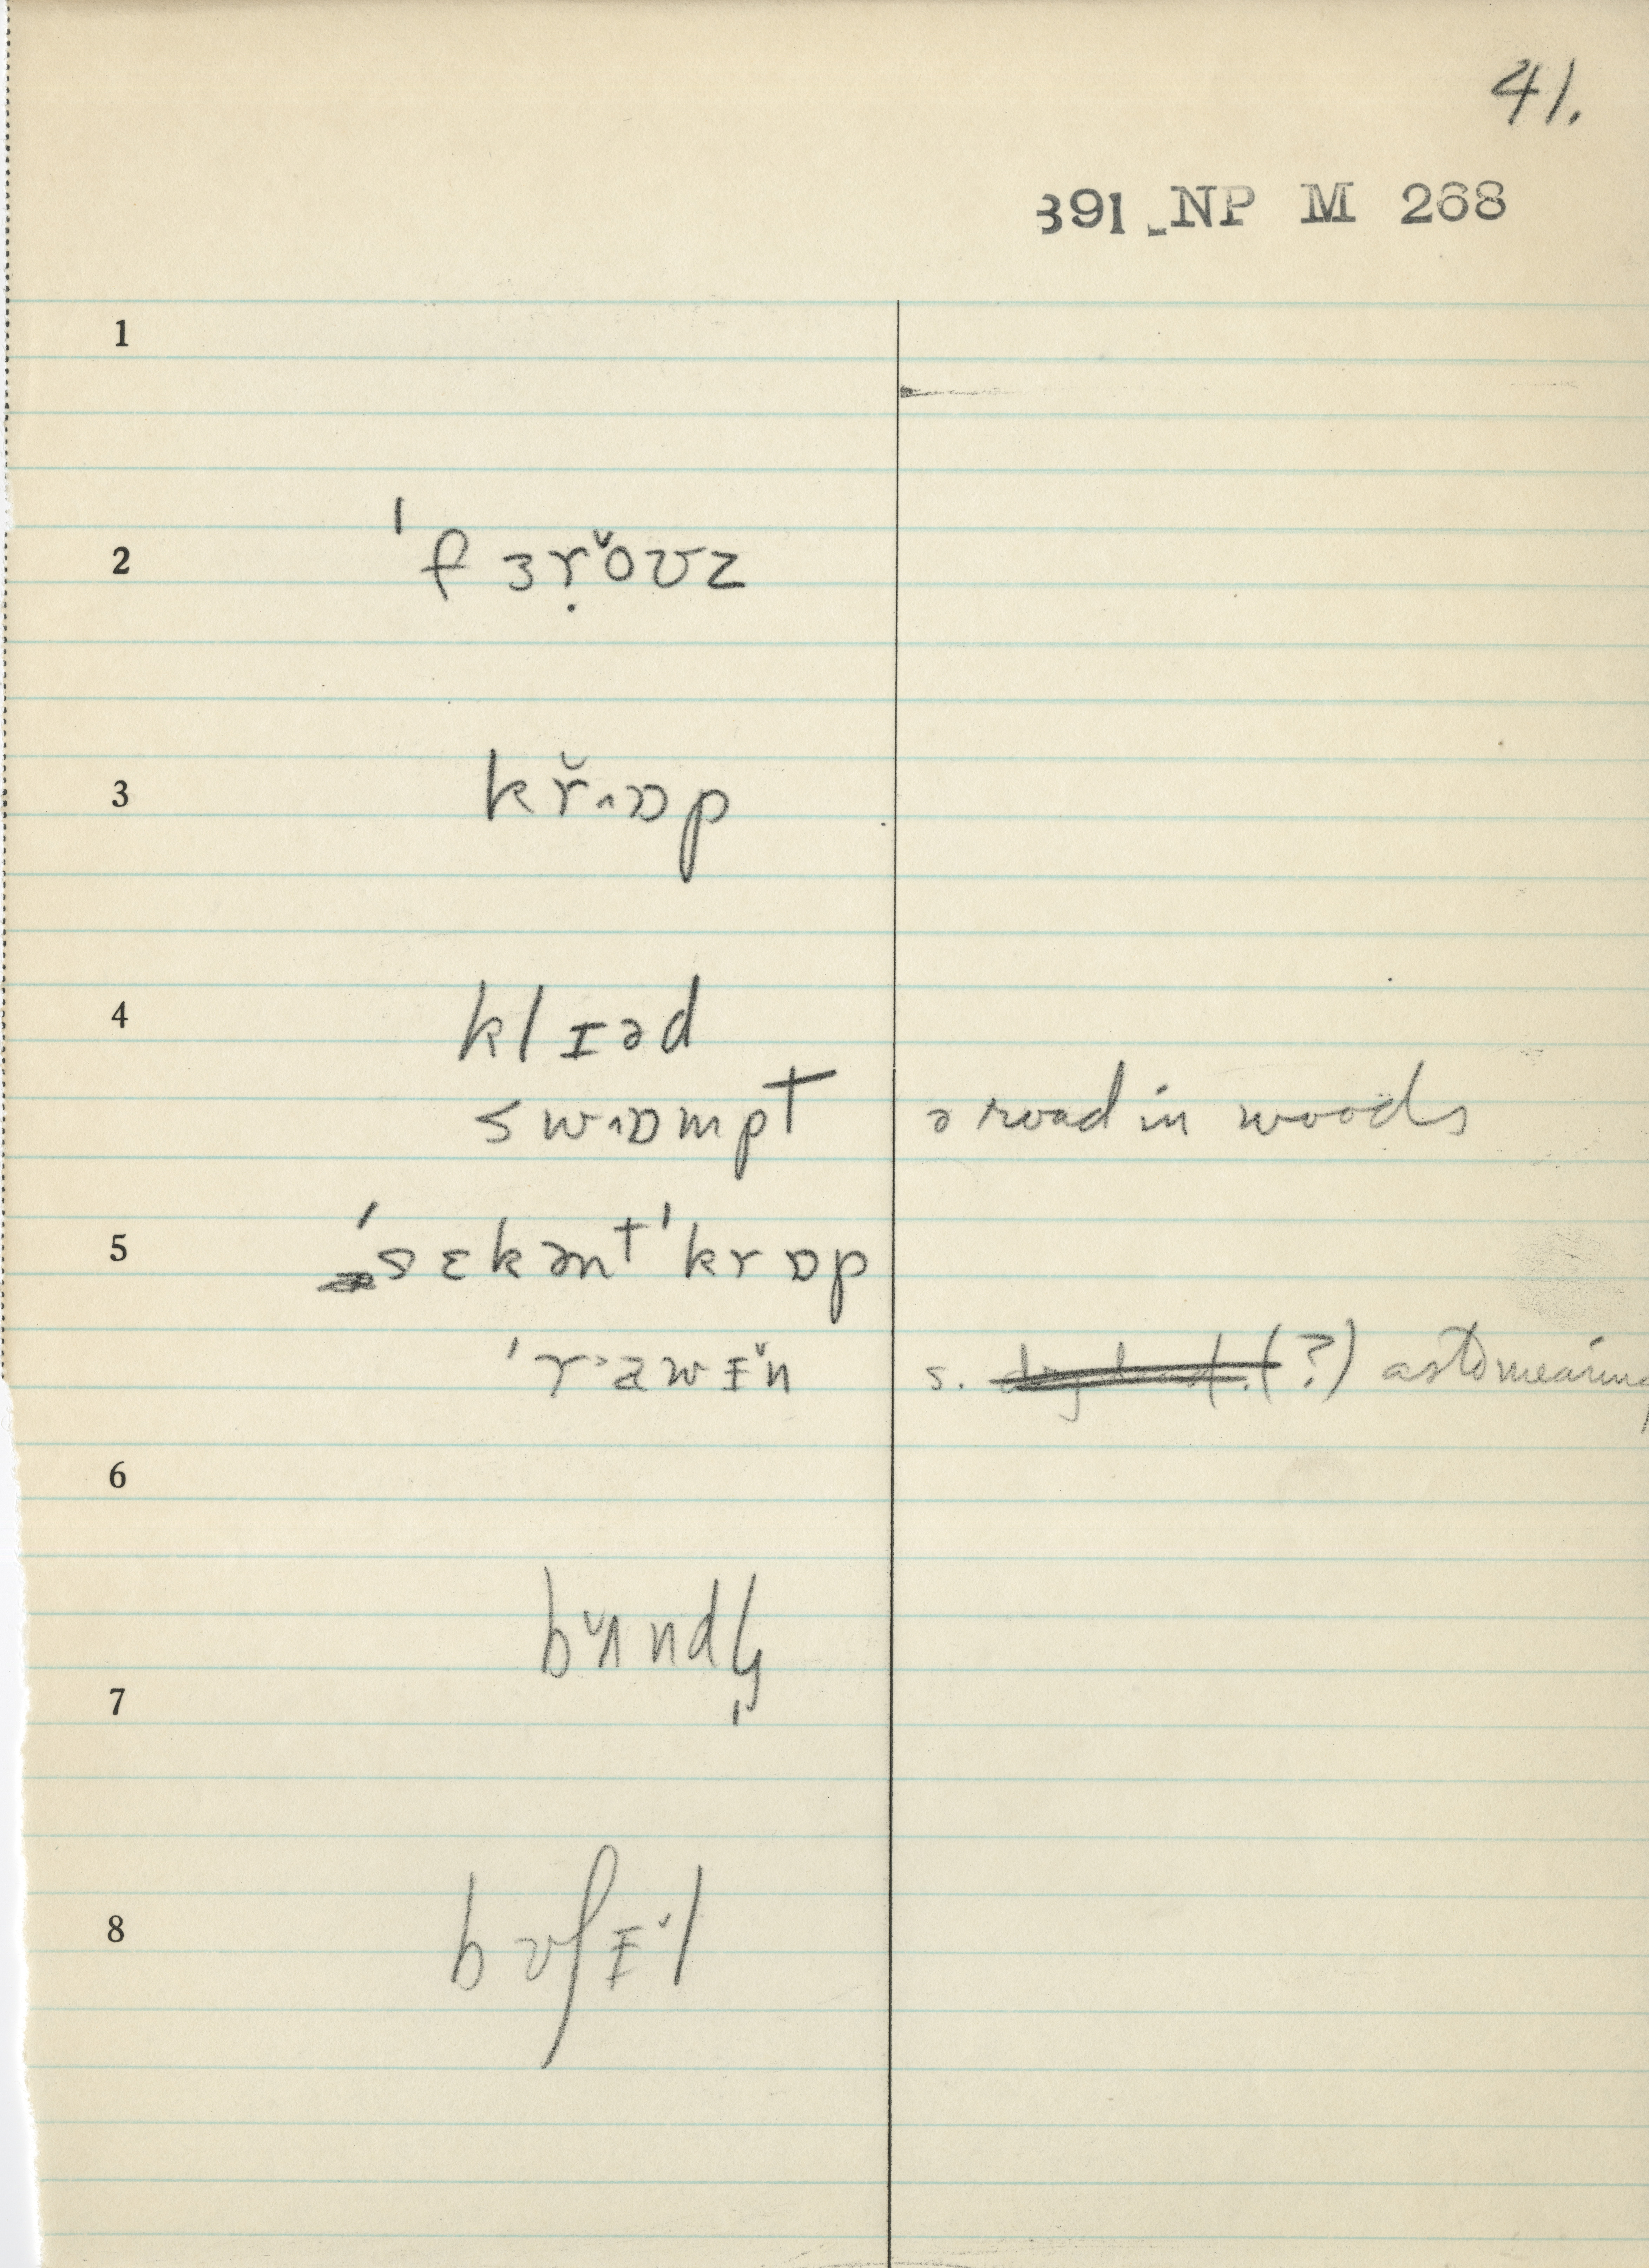 41.
391 NP M 268
1
2 ˈfɜṛ̆oʊz
3 kř˄ɒp
4 klɪəd
sw˄ɒmpt ə road in woods
5 ˈsɛkənt ˈkrɒp
ˈrawɪ̆n s. (?) as to meaning
6
bʌ̆ndl̩
7
8 bʊʃɪ̆l